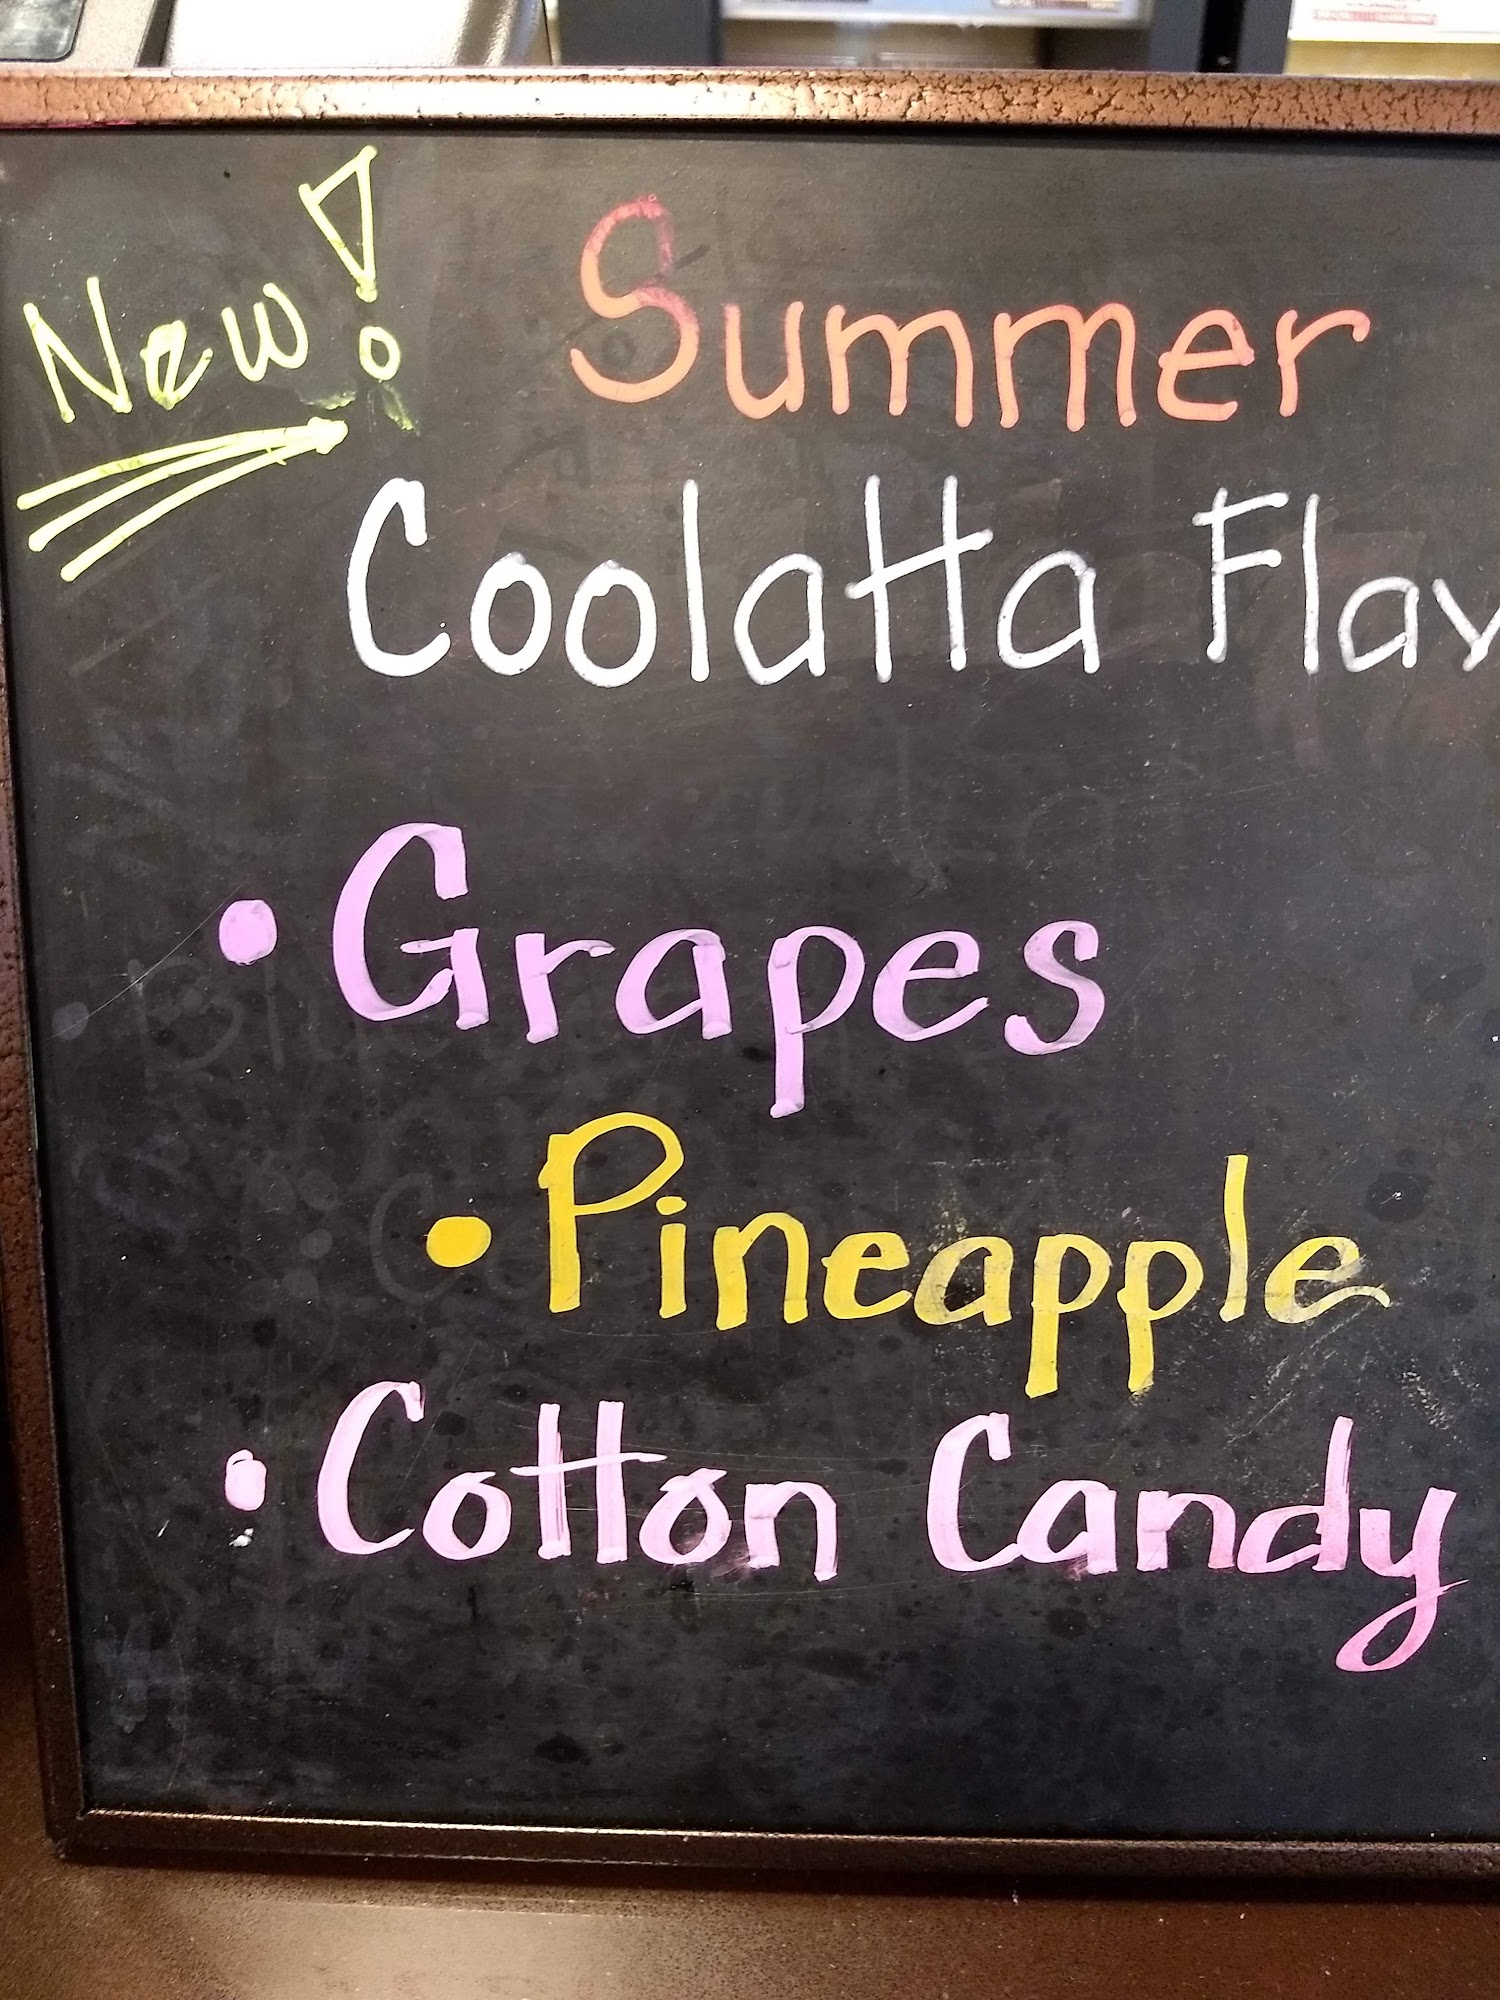 New!
Summer
Coolatta Flav
• Grapes
• Pineapple
• Cotton Candy